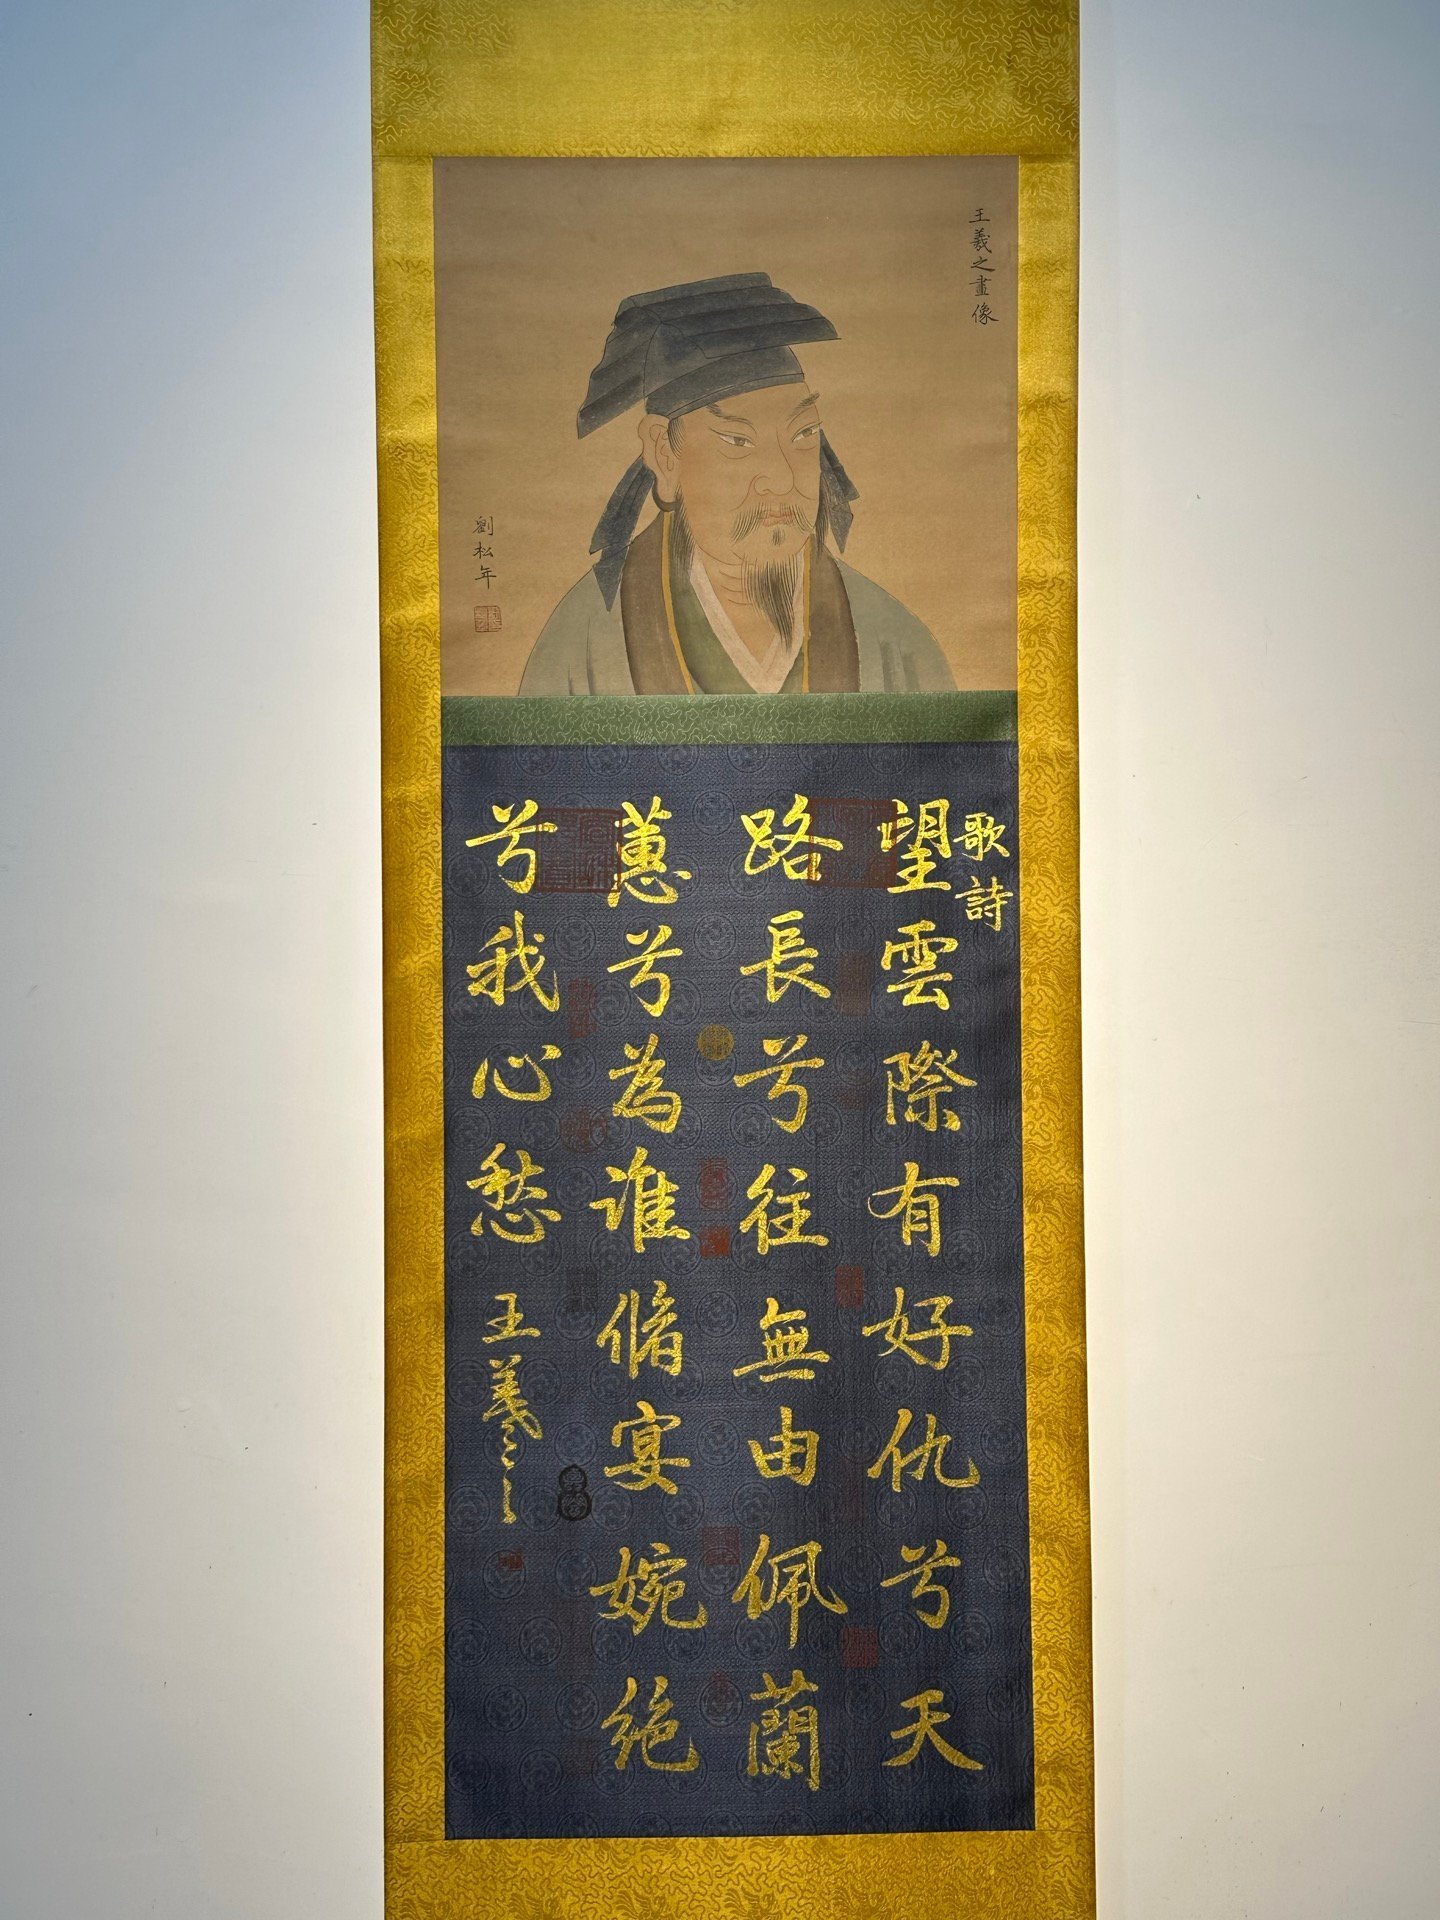 王羲之畫像
劉松年
歌詩
望雲際有好仇兮天
路長兮往無由佩蘭
蕙兮為誰脩宴婉絶
兮我心愁
王羲之